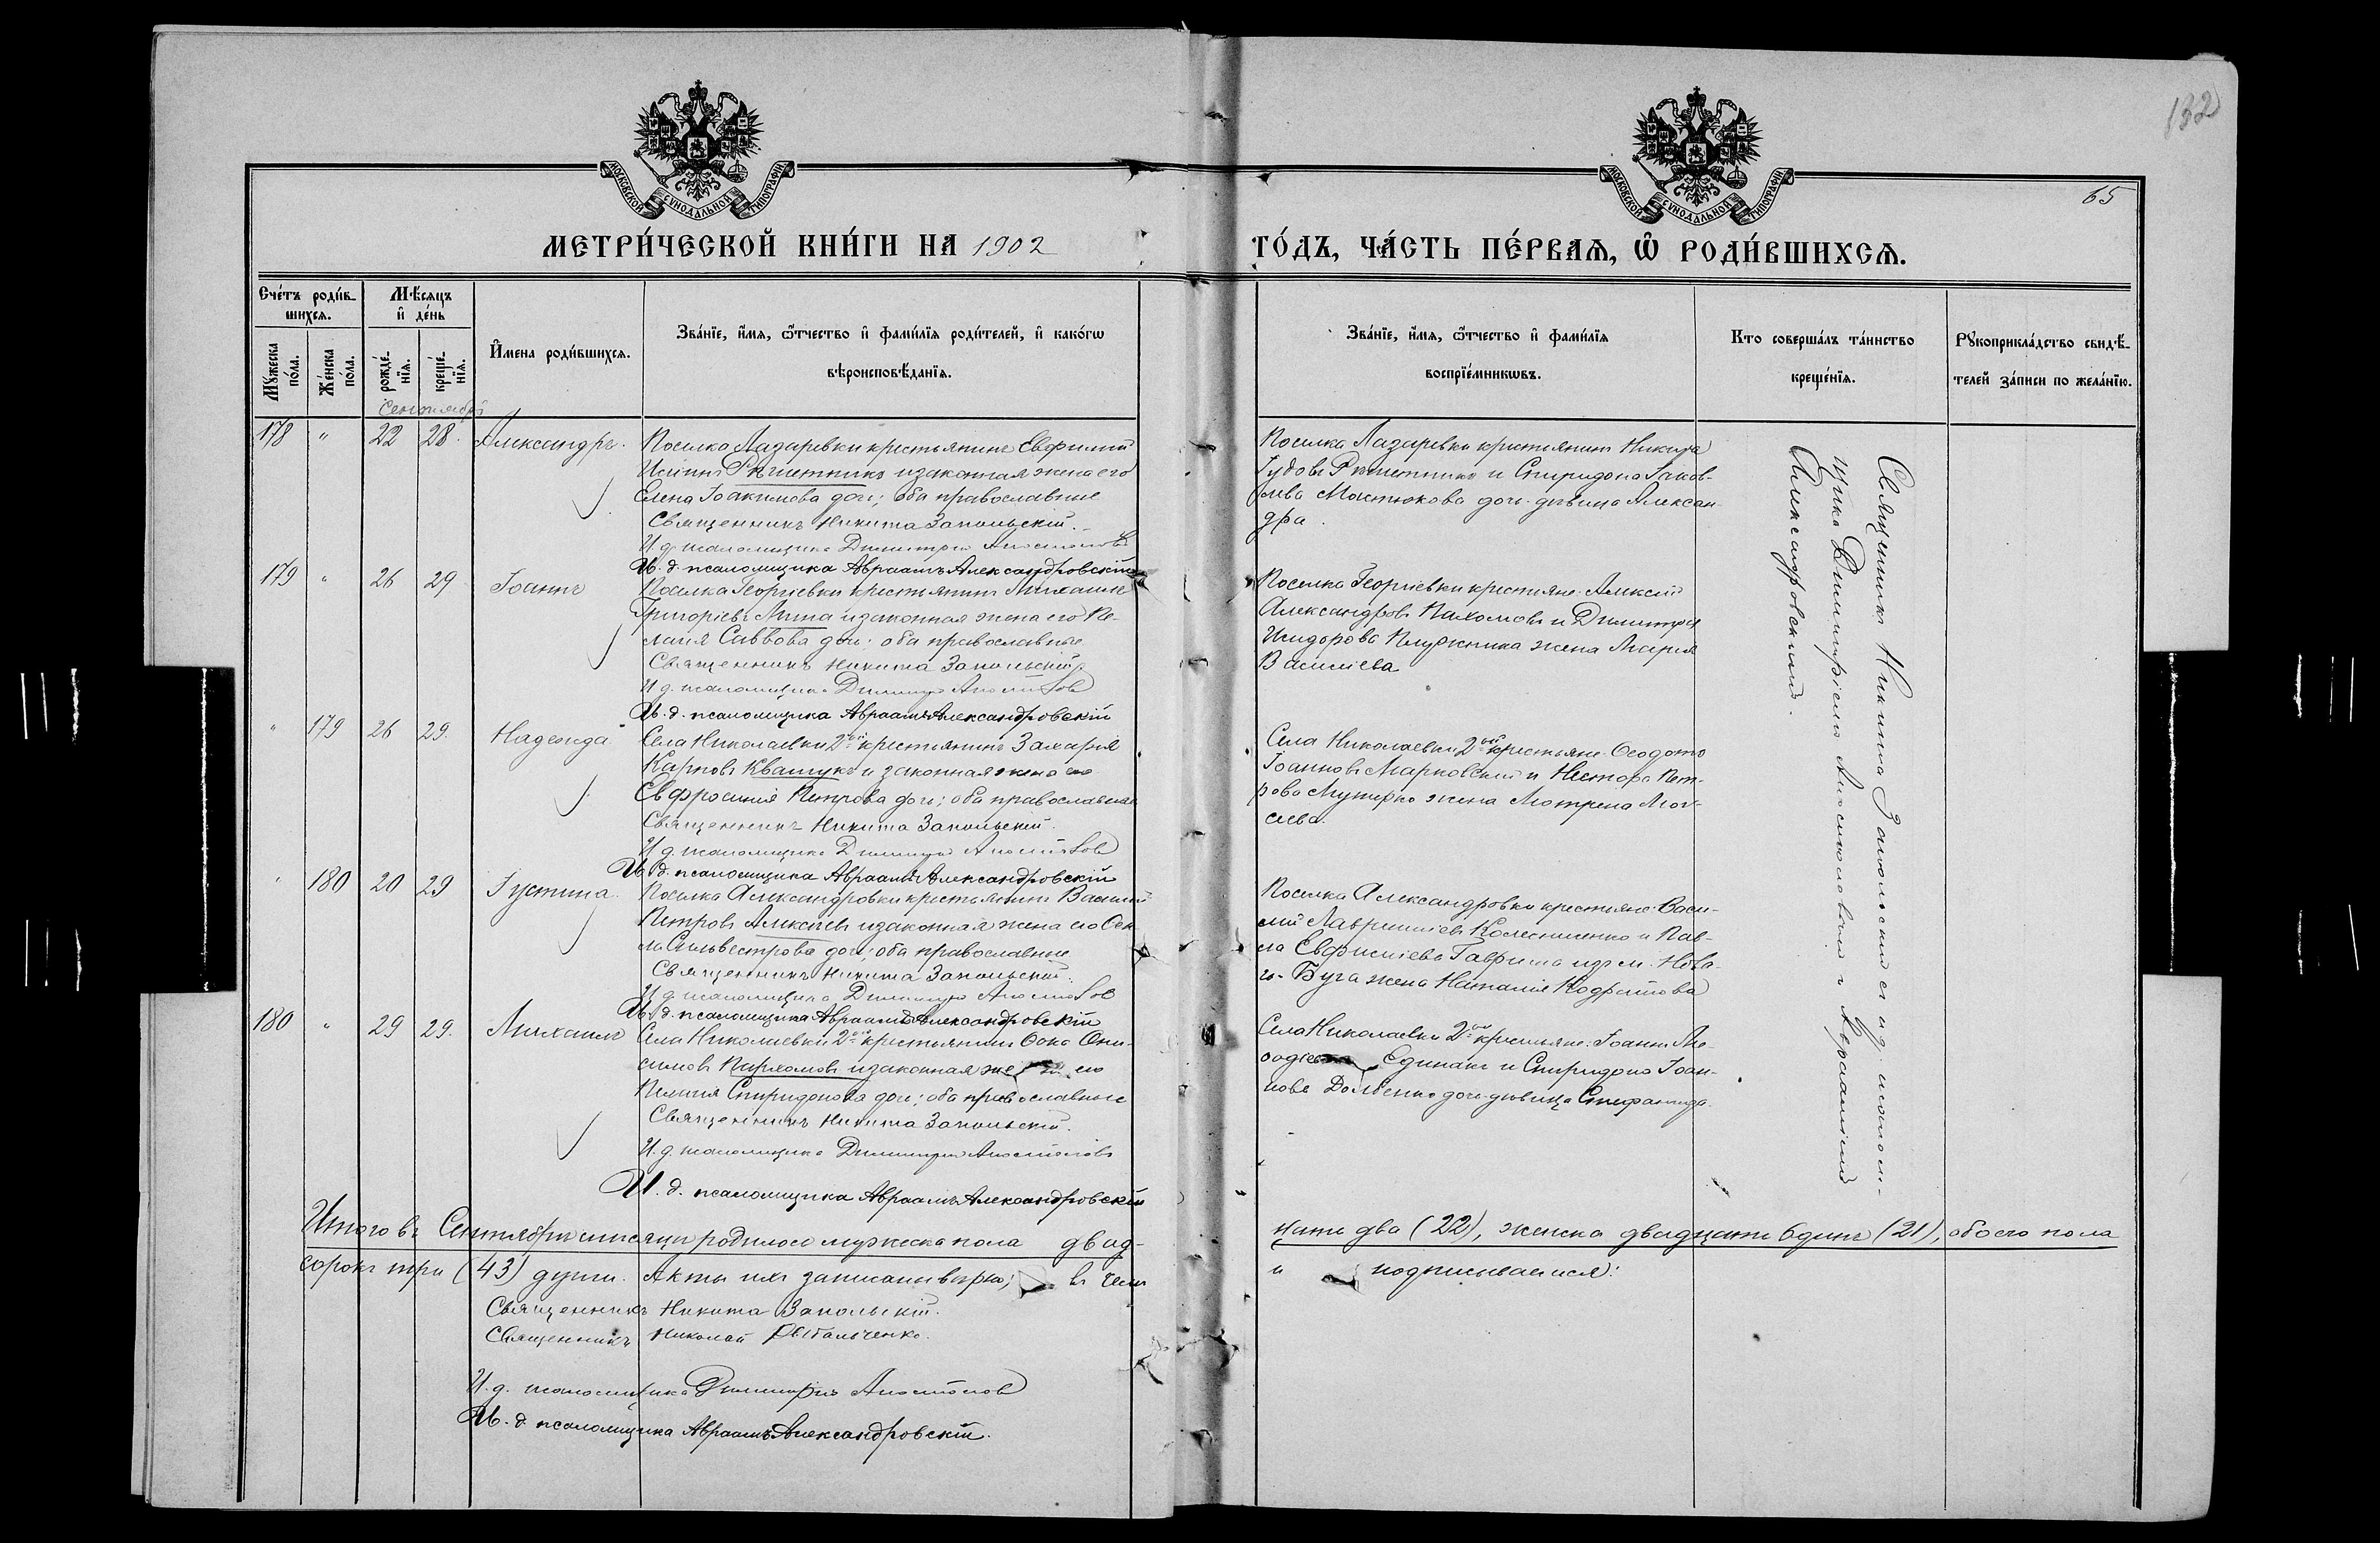 132
65
МОСКОВСКОЙ СУНОДАЛЬНОЙ ТИПОГРАФІИ
МОСКОВСКОЙ СУНОДАЛЬНОЙ ТИПОГРАФІИ
МЕТРИ́ЧЕСКОЙ КНИ́ГИ НА 1902
ГО́ДЪ, ЧА́СТЬ ПЕ́РВАЯ, Ѡ҆ РОДИ́ВШИХСЯ.
Сче́тъ роди́в-
шихся.
Мꙋ́жеска по́ла.
Же́нска по́ла.
Мѣ́сяцъ
и҆ де́нь
рожде́-
нїя.
креще́-
нїя.
И҆мена роди́вшихся.
Зва́нїе, и҆́мя, ѻ҆́тчество и҆ фами́лїя роди́телей, и҆ како́гѡ
вѣроисповѣ́данїя.
Зва́нїе, и҆́мя, ѻ҆́тчество и҆ фами́лїя
воспрїе́мникѡвъ.
Кто соверша́лъ та́инство
креще́нїя.
Рꙋкоприкла́дство свидѣ́-
телей за́писи по жела́нїю.
Сентябрь
178 " 22 28. Александръ.
Поселка Лазаревки крестьянинъ Евфимій
Рѣшетникъ и законная жена его
Елена Іоакимова дочь; оба православные
Священникъ Никита Запольскій.
И. д. псаломщика Димитрій Апостоловъ
И. д. псаломщика Авраамъ Александровскій
Поселка Лазаревки крестьянинъ Никита
Гудовъ Рѣшетникъ и Спиридона Іаков-
лева Мостюкова дочь дѣвица Алексан-
дра.
179 " 26 29 Іоаннъ
Поселка Георгіевки крестьянинъ Михаилъ
Григорьевъ и законная жена его Пе-
лагія Саввова дочь; оба православные
Священникъ Никита Запольскій
И. д. псаломщика Димитрій Апостоловъ
И. д. псаломщика Авраамъ Александровскій
Поселка Георгіевки крестьяне: Алексій
Александровъ Пахомовъ и Димитрія
Исидорова Плужника жена Марія
Василіева
" 179 26 29. Надежда
Села Николаевки 2ой крестьянинъ Захарія
Карповъ Квашукъ и законная жена его
Евфросинія Петрова дочь; оба православные
Священникъ Никита Запольскій.
И. д. псаломщика Димитрій Апостоловъ
И. д. псаломщика Авраамъ Александровскій
Села Николаевки 2ой крестьяне: Ѳеодотъ
Іоанновъ Марковскій и Нестора Пет-
рова жена Мотрена Мои-
сеева.
" 180 20 29 Іустина
Поселка Александровки крестьянинъ Василій
Петровъ Алексѣевъ и законная жена его Ѳек-
ла Сильвестрова дочь; оба православные
Священникъ Никита Запольскій.
И. д. псаломщика Димитрій Апостоловъ
И. д. псаломщика Авраамъ Александровскій
Поселка Александровки крестьяне: Васи-
лій Лаврентіевъ Колесниченко и Пав-
ла Евфиміева Гавриша изъ м. Нова-
го-Буга жена Наталія Кодратова
180 " 29 29. Михаилъ
Села Николаевки 2ой крестьянинъ Ѳока Они-
симовъ Пархомовъ и законная жена его
Спиридонова дочь; оба православные
Священникъ Никита Запольскій.
И. д. псаломщика Димитрій Апостоловъ
И. д. псаломщика Авраамъ Александровскій
Села Николаевки 2ой крестьяне: Іоаннъ Ме-
ѳодіевъ Единакъ и Спиридона Іоан-
нова Долбенко дочь дѣвица Стефанида.
Священникъ Никита Запольскій съ и. д. псалом-
щика Димитріемъ Апостоловымъ и Авраамомъ
Александровскимъ.
Итого въ Сентябрѣ мѣсяцѣ родилось мужеска пола двад-
цать два (22), женска двадцать одинъ (21), обоего пола
сорокъ три (43) души. Акты ихъ записаны вѣрно; въ чемъ
и подписываемся:
Священникъ Никита Запольскій.
Священникъ Николай Рыбальченко.
И. д. псаломщика Димитрій Апостоловъ
И. д. псаломщика Авраамъ Александровскій.